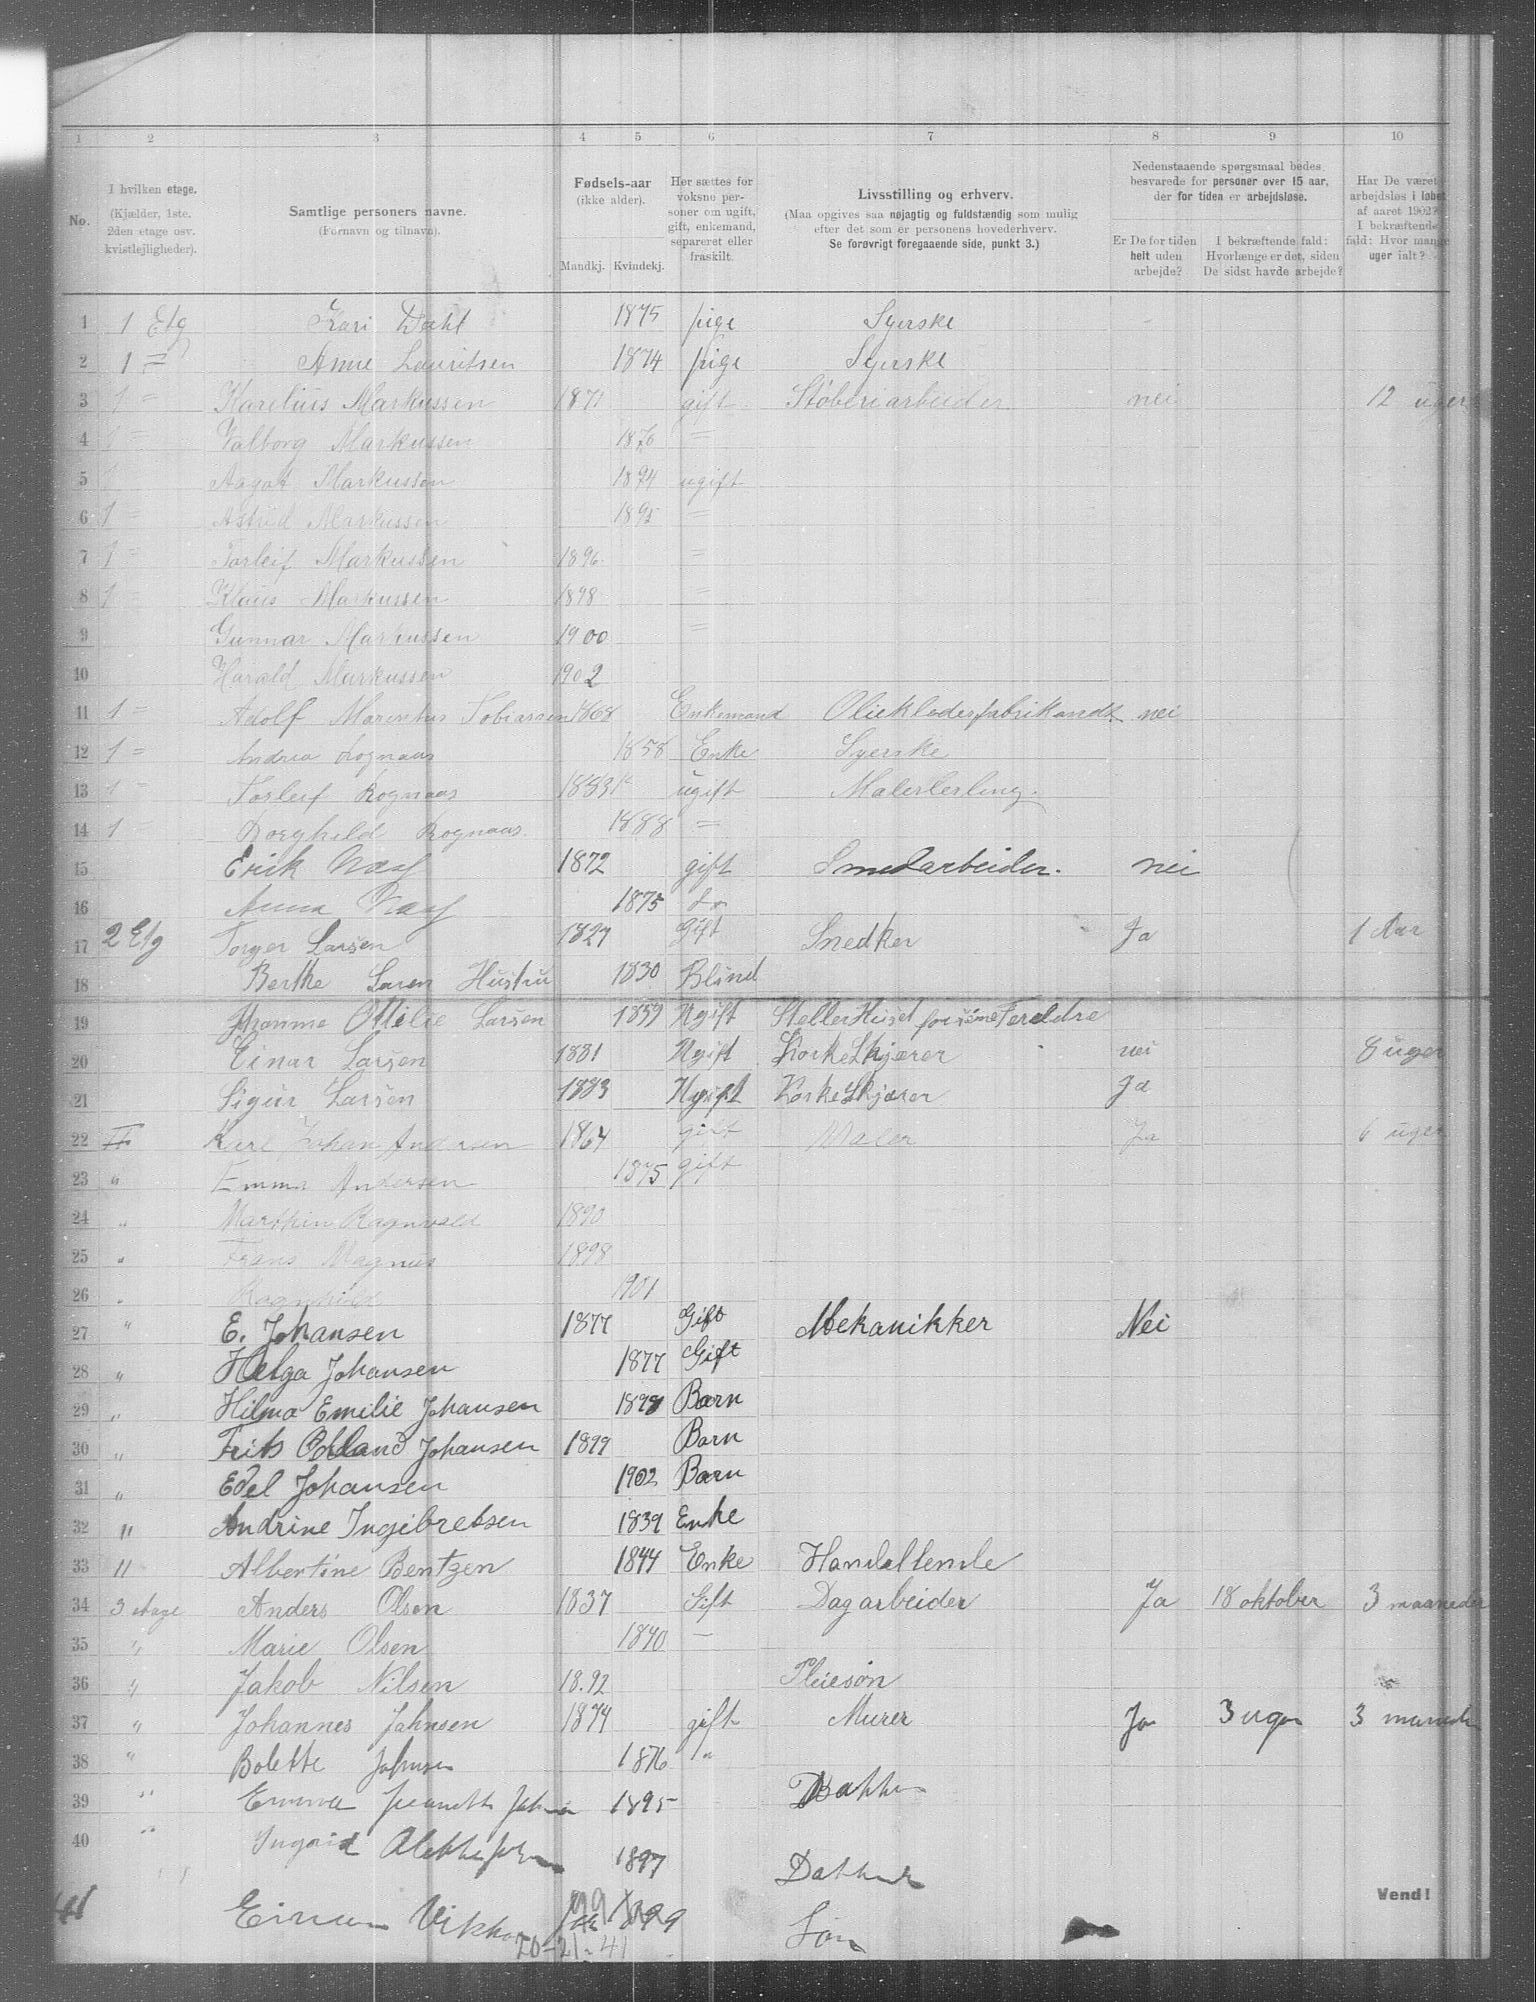 1 2 3 4 5 6 7 8 9 10
No.
I hvilken etage.
(Kjælder, 1ste.
2den etage osv.
kvistlejligheder).
Samtlige personers navne.
(Fornavn og tilnavn).
Fødsels-aar
(ikke alder).
Mandkj. Kvindekj.
Her sættes for
voksne per-
soner om ugift,
gift, enkemand,
separeret eller
fraskilt.
Livsstilling og erhverv.
(Maa opgives saa nøjagtig og fuldstændig som mulig
efter det som er personens hovederhverv.
Se forøvrigt foregaaende side, punkt 3.)
Nedenstaaende spørgsmaal bedes
besvarede for personer over 15 aar,
der for tiden er arbejdsløse.
Er De for tiden
helt uden
arbejde?
I bekræftende fald:
Hvorlænge er det, siden
De sidst havde arbejde?
Har De været
arbejdsløs i løbet
af aaret 1902?
I bekræftende
fald: Hvor mange
uger ialt?
1 1 Etg Kari Dahl 1875 pige Syerske
2 1 = Anne Lauritsen 1874 pige Syerske
3 1 = Karelius Markussen 1871 gift Støberiarbeider nei 12 uger
4 1 = Valborg Markussen 1876 =
5 1 Aagot Markussen 1894 ugift
6 1 = Astrid Markussen 1895 =
7 1 = Torleif Markussen 1896 =
8 1 = Klaus Markussen 1898 =
9 Gunnar Markussen 1900 =
10 Harald Markussen 1902
11 1 = Adolf Marentius Tobiassen 1868 Enkemand Oliekladerfabrikandt nei
12 1 = Andrea Rognaas 1858 Enke Syerske
13 1 = Torleif Rognaas 1883 ugift Malerlerling.
14 1 = Borghild Rognaas. 1888 =
15 Erik 1872 gift Smedarbeider. nei
16 Anna 1875 do
17 2 Etg Torger Larsen 1827 Gift Snedker Ja 1 Aar
18 Berthe Larsen Hustru 1830 Blind
19 Ottilie Larsen 1859 Ugift Steller Huset for sine Foreldre
20 Einar Larsen 1881 Ugift Korkeskjærer nei 8 uger
21 Sigur Larsen 1883 Ugift Korkeskjærer Ja
22 II Karl Johan Andersen 1864 gift Maler Ja 6 uger
23 " Emma Andersen 1875 gift
24 " Marthin Ragnvald 1890
25 " Frans Magnus 1898
26 " Ragnhild 1901
27 " E. Johansen 1877 Gift Mekanikker Nei
28 " Helga Johansen 1877 Gift
29 " Hilma Emilie Johansen 1898 Barn
30 " Frits Johansen 1899 Barn
31 " Edel Johansen 1902 Barn
32 " Andrine Ingebretsen 1839 Enke
33 " Albertine Bentzen 1844 Enke Handallende
34 3 etage Anders Olsen 1837 Gift Dagarbeider Ja 18 oktober 3 maaneder
35 " Marie Olsen 1840 —
36 " Jakob Nilsen 1892 Pleiesøn
37 " Johannes Jahnsen 1874 gift Murer Ja 3 uger 3 maaneder
38 " Bolette Jahnsen 1876 "
39 " Emma 1895 Datter
40 " Ingrid 1897 Datter
Vend!
41 Einar 1899 Søn
20-21-41